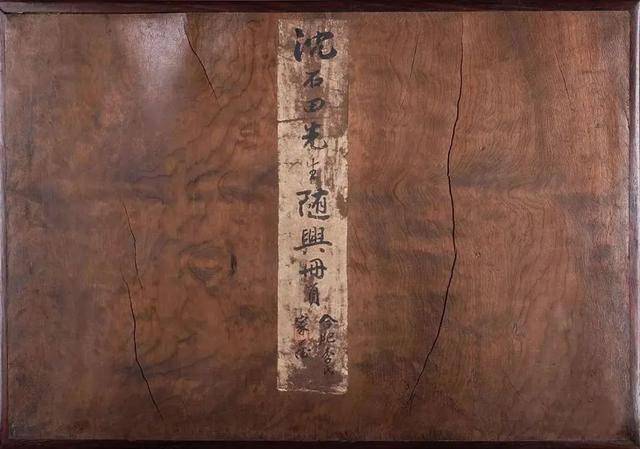 沈石田先生随興冊頁
合肥李氏
家藏